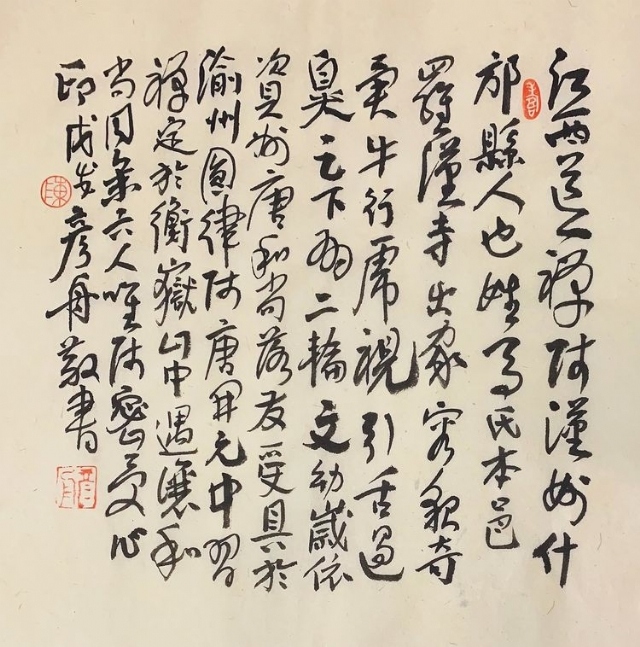 江西道一禪師漢州什
邡縣人也姓馬氏本邑
羅漢寺出家容貌奇
異牛行虎視引舌過
鼻足下有二輪文幼歲依
資州唐和尚落髮受具於
渝州圓律師唐開元中習
禪定於衡嶽山中遇讓和
尚同參六人唯師密受心
印戊戌彥舟敬書
陳